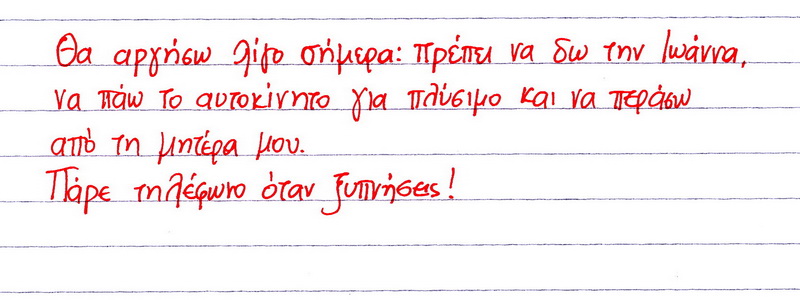 Θα αργήσω λίγο σήμερα: πρέπει να δω την Ιωάννα,
να πάω το αυτοκίνητο για πλύσιμο και να περάσω
από τη μητέρα μου.
Πάρε τηλέφωνο όταν ξυπνήσεις!